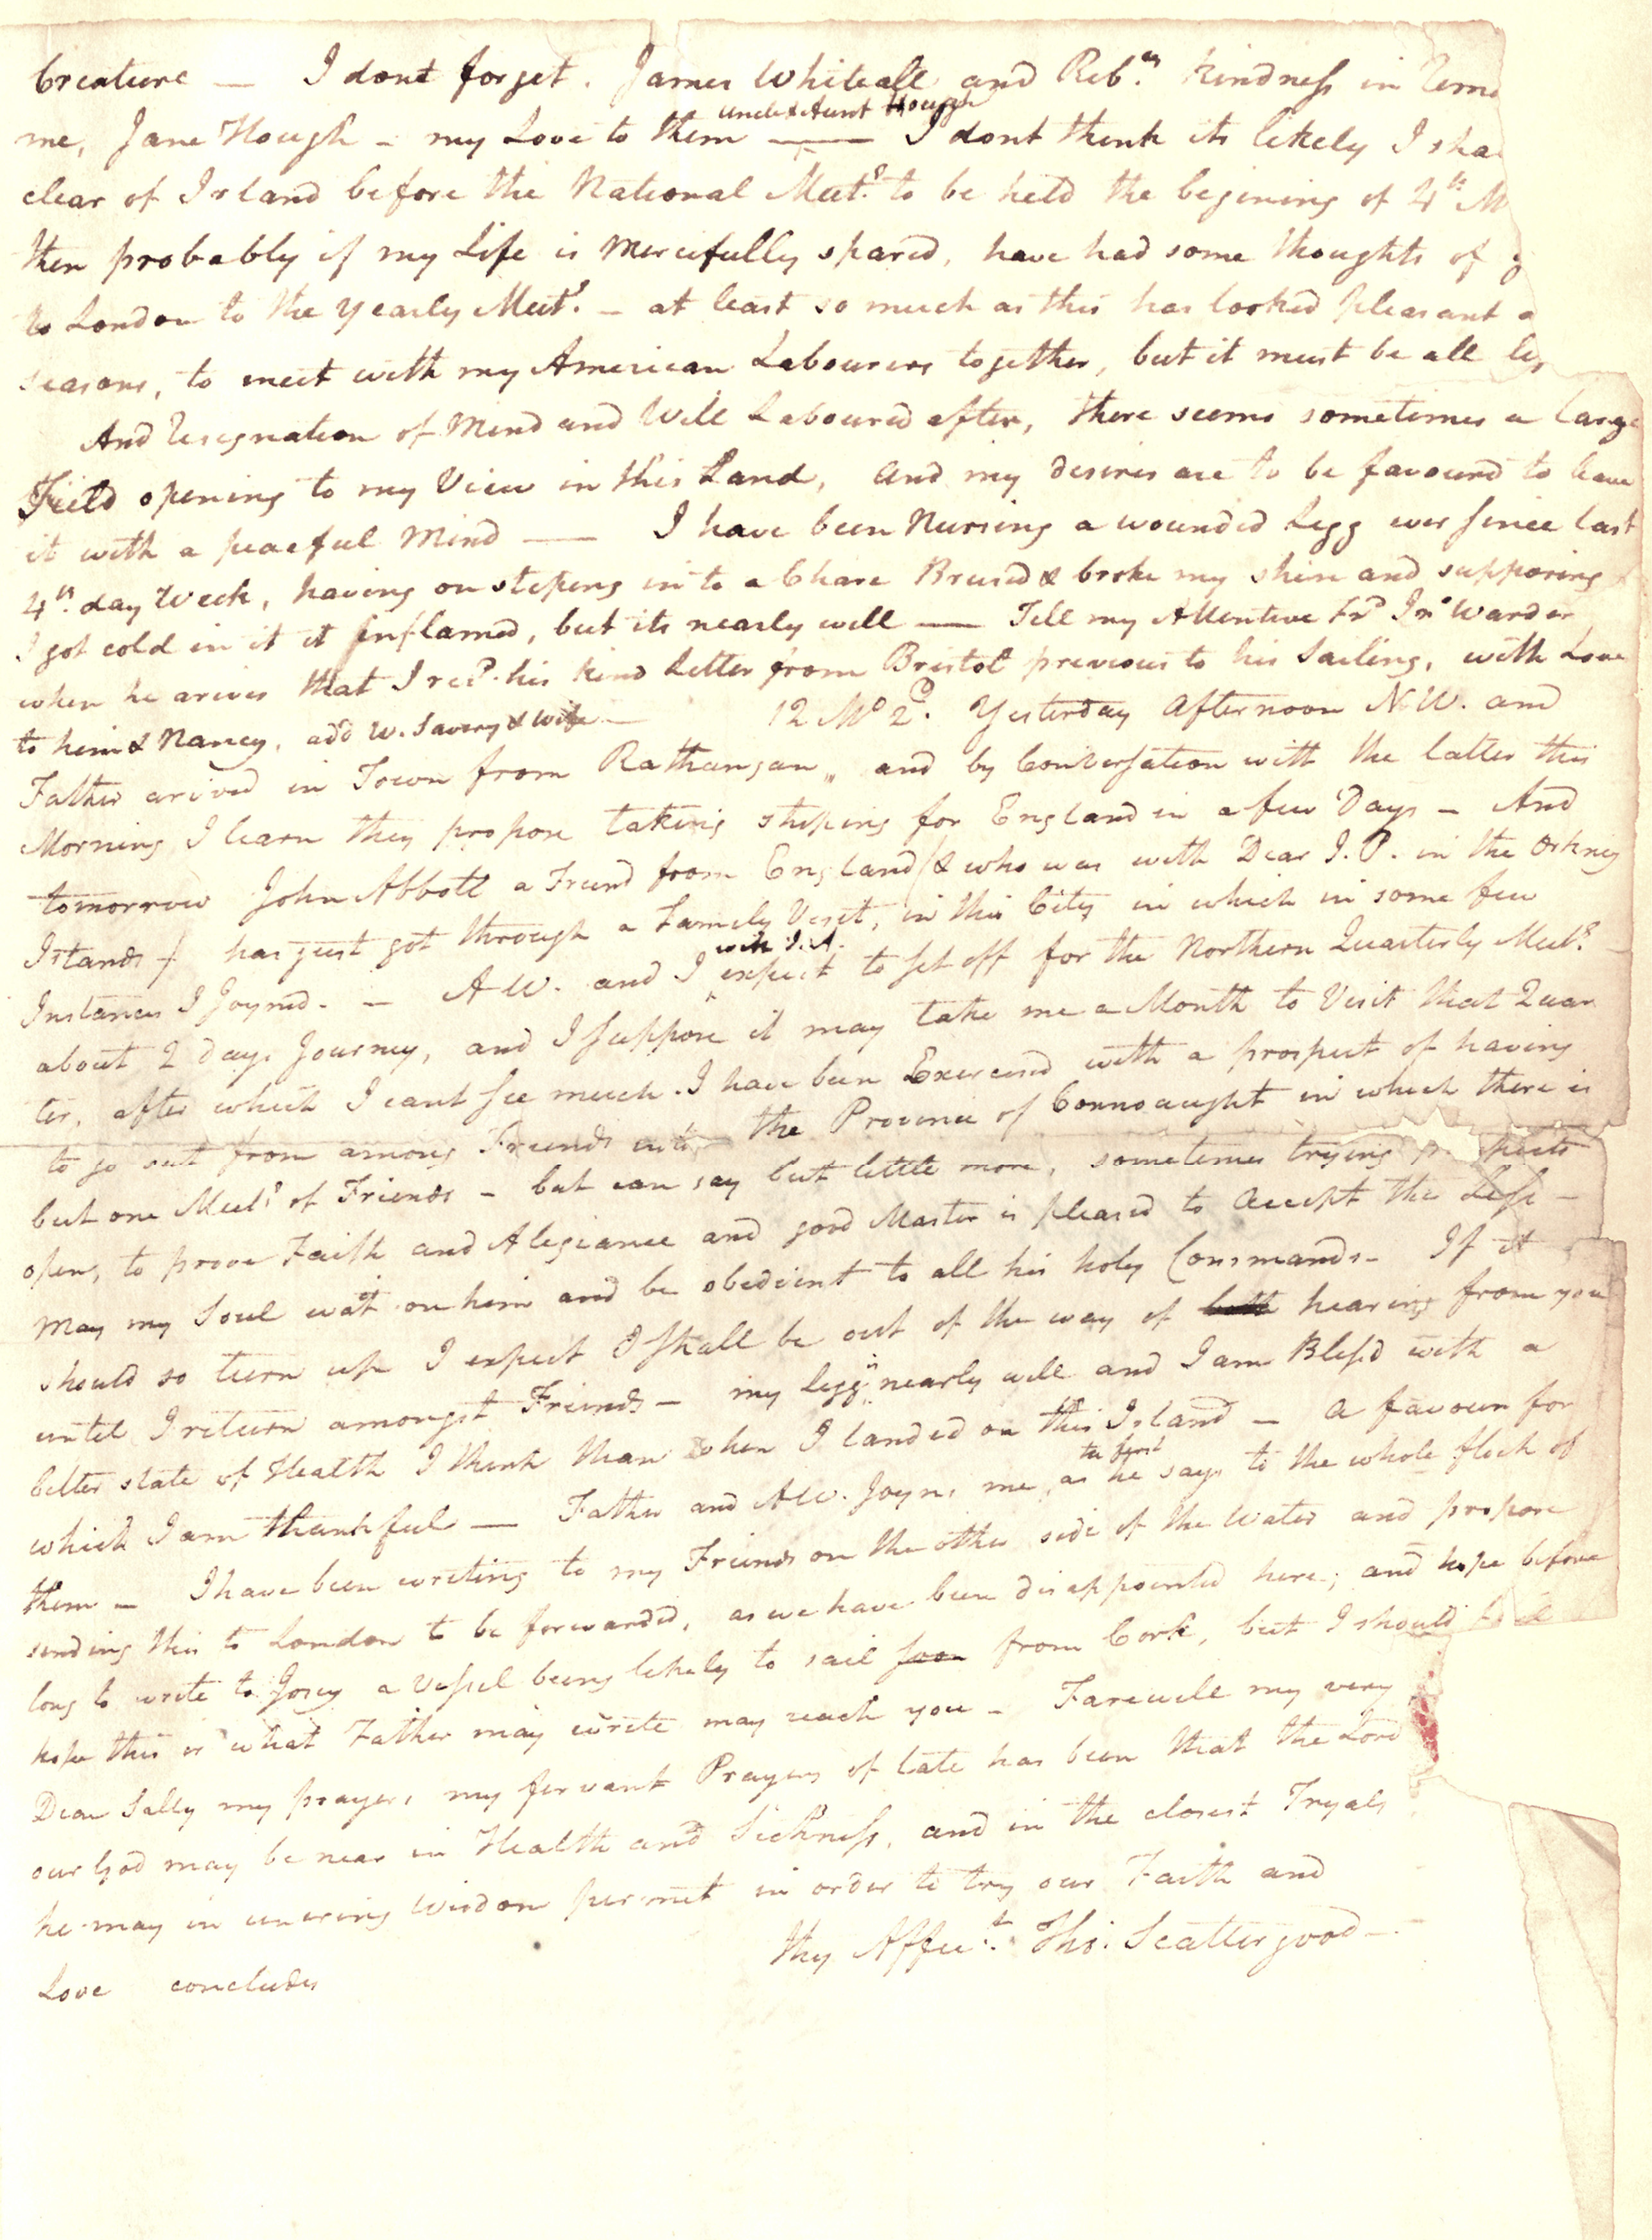 Creature — I dont forget. James Whiteall and Reb.^a Kindness in
me, Jane Hough – my Love to them uncle & Aunt Hough — I dont think its likely I
clear of Irland before the National Meet.g to be held the begining of 4th M
then probably if my Life is Mercifully spared, have had some thoughts of
to London to the yearly Meet.g – at least so much as this has looked pleasant
seasons, to meet with my American Labourers together, but it must be all
And Resignation of Mind and Will Laboured after, there seems sometimes a large
Field opening to my View in this Land, and my desires are to be favourd to leave
it with a peaceful Mind — I have been Nursing a wounded Legg ever since last
4th day Week, having on steping in to a Chase Brused & broke my shin and supposing
I got cold in it it Inflamed, but its nearly well — Tell my Attentive Frd Jno Warder
when he arives that I recd. his kind Letter from Bristol previous to his Sailing, with Love
to him & Nancy, add W. Savery & wife — 12 Mo 2d. Yesterday Afternoon N.W. and
Father arived in Town from Rathangan, and by Conversation with the latter this
Morning I learn they propose taking shiping for England in a few Days – And
tomorrow John Abbott a Friend from England (& who was with Dear J.P. in the Orkney
Islands) has just got through a Family Visit, in this City in which in some few
Instances I Joyned. – A W. and I with J.A. expect to set off for the Northern Quarterly Meet.g
about 2 days Journey, and I suppose it may take me a Month to Visit that Quar
ter, after which I cant see much. I have been Exercised with a prospect of having
to go out from among Friends into the Province of Connoaught in which there is
but one Meet.g of Friends – but can say but little more, sometimes trying
open, to prove Faith and Alegiance and good Master is pleased to accept the
May my Soul wait on him and be obedient to all his holy Commands – If it
should so turn up I expect I shall be out of the way of hearing from you
until I return amongst Friends – my legg is nearly well and I am Bless'd with a
better state of Health I think than when I landed on this Island – a favour for
which I am thankful — Father and A W. Joyns me, as he says to the whole flock of
them – I have been writing to my Friends on the other side of the Water and propose
sending this to London to be forwarded, as we have been disappointed here; and hope before
long to write to Josey a Vessel being likely to sail soon from Cork, but I should
hope this or what Father may write may reach you – Farewell my very
Dear Sally my prayers, my fervant Prayers of late has been that the Lord
our God may be near in Health and Sickness, and in the closest Tryals
he may in unering Wisdom permit in order to try our Faith and
Love concludes thy Affect. Tho.s Scattergood –